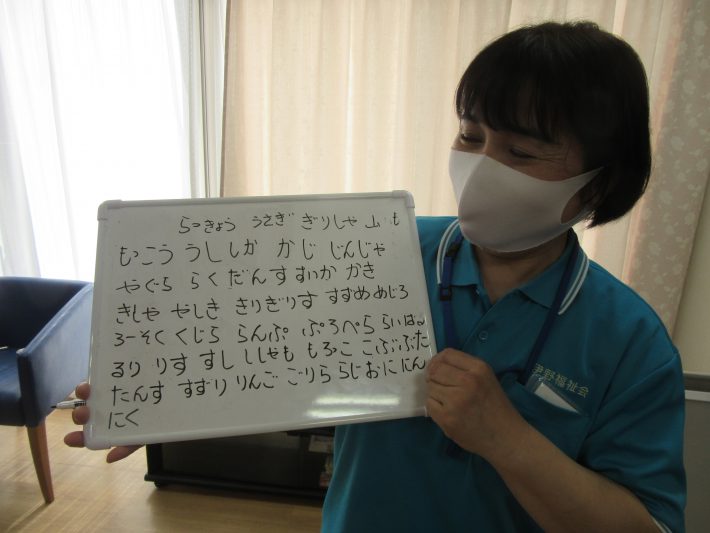 らっきょう うさぎ ぎりしゃ 山も
むこう うし しか かじ じんじゃ
やぐら らくだ んす すいか かき
きしゃ やしき きりぎりす すずめ めじろ
ろーそく くじら らんぷ ぷろぺら らいぱる
るり りす すし ししゃも もろっこ こぶ ぶた
たんす すずり りんご ごりら らじお おに にん
にく
伊野福祉会